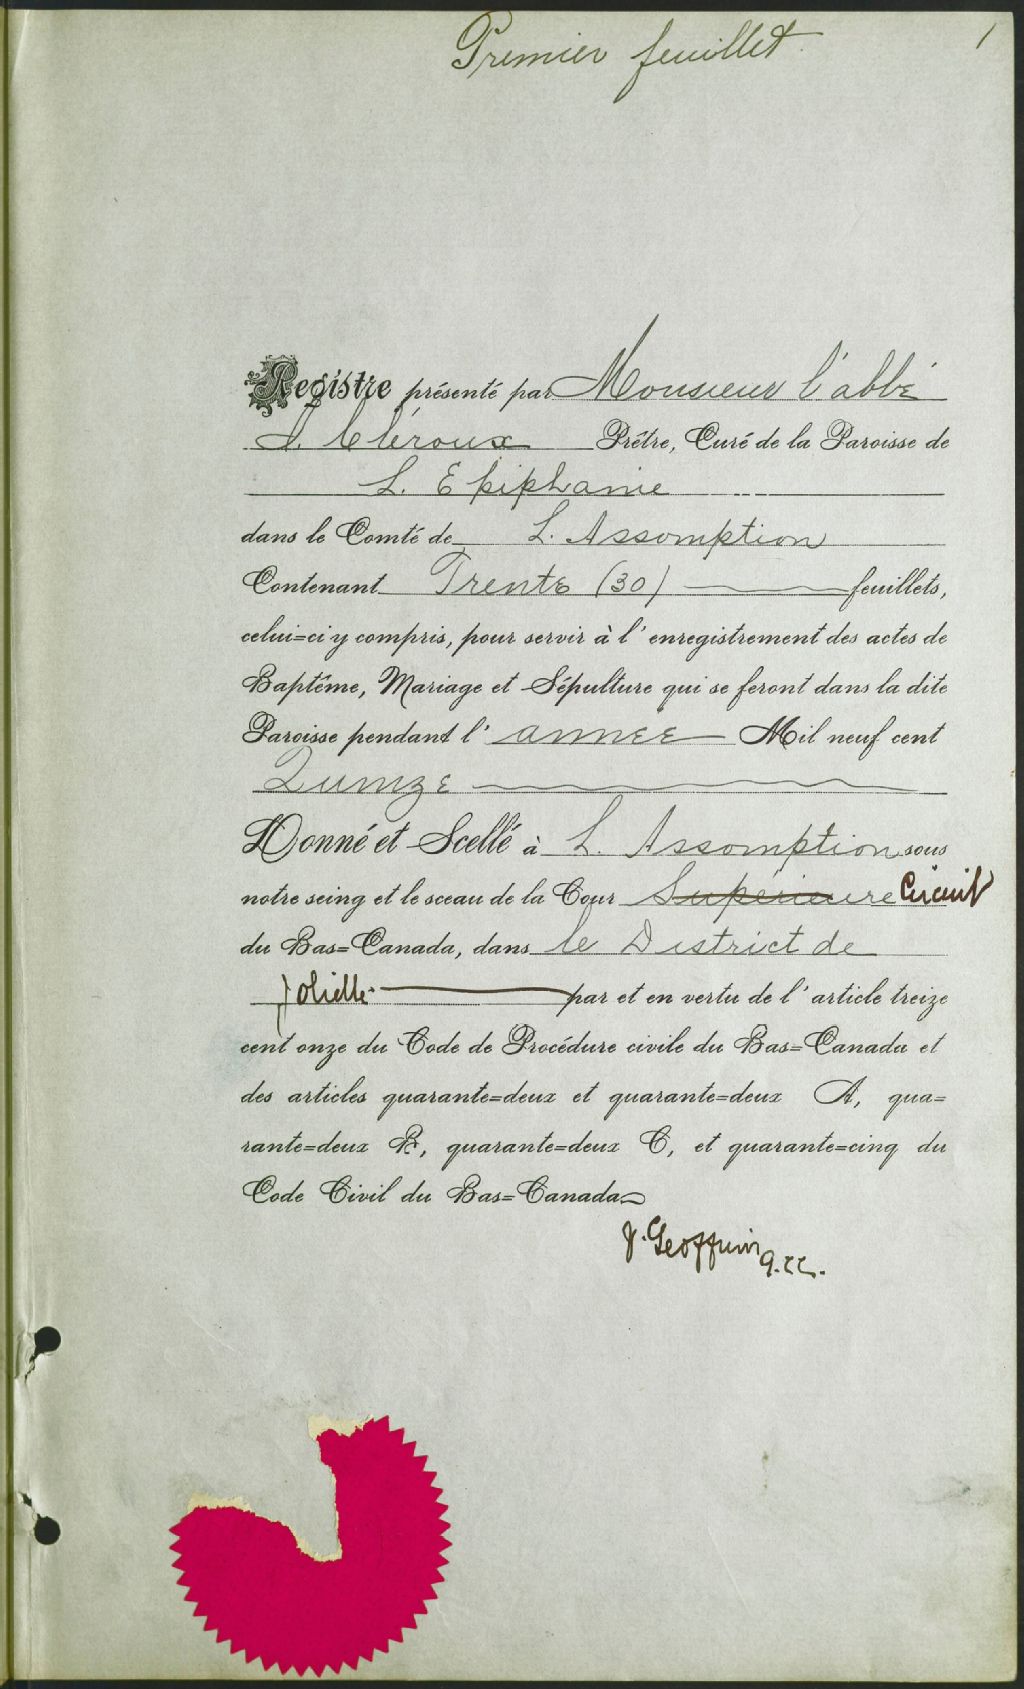 Premier feuillet. 1
Registre présenté par Monsieur l'abbé
Prêtre, Curé de la Paroisse de
L. Epiphanie
dans le Comté de L. Assomption
Contenant Trente (30) feuillets,
celui=ci y compris, pour servir à l'enregistrement des actes de
Baptême, Mariage et Sépulture qui se feront dans la dite
Paroisse pendant l'année Mil neuf cent
Quinze
Donné et Scellé à L. Assomption sous
notre seing et le sceau de la Cour Supérieure Circuit
du Bas=Canada, dans le District de
Joliette par et en vertu de l'article treize
cent onze du Code de Procédure civile du Bas=Canada et
des articles quarante=deux et quarante=deux A, qua=
rante=deux B, quarante=deux C, et quarante=cinq du
Code Civil du Bas=Canada